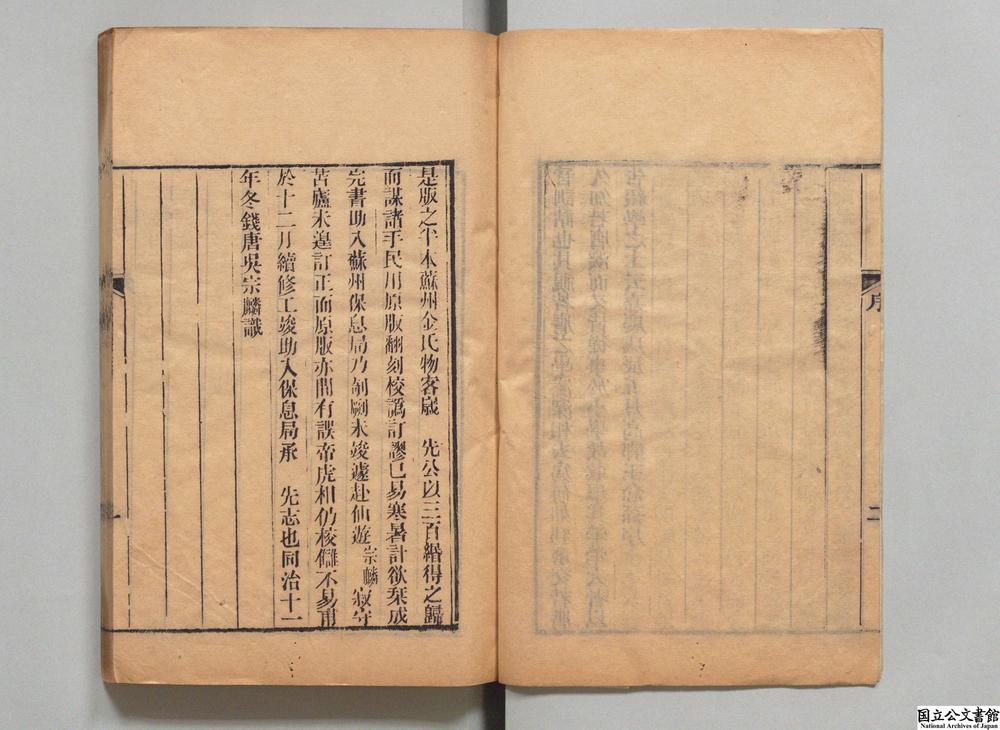 序
二
是版之半本蘇州金氏物客歲　先公以三百緡得之歸
而謀諸手民用原版翻刻校譌訂謬已易寒暑計欲栞成
完書助入蘇州保息局乃剞劂未竣遽赴仙遊宗麟寂守
苫廬未遑訂正而原版亦間有誤帝虎相仍校讎不易甫
於十二月續修工竣助入保息局承　先志也同治十一
年冬錢唐吳宗麟識
国立公文書館
National Archives of Japan